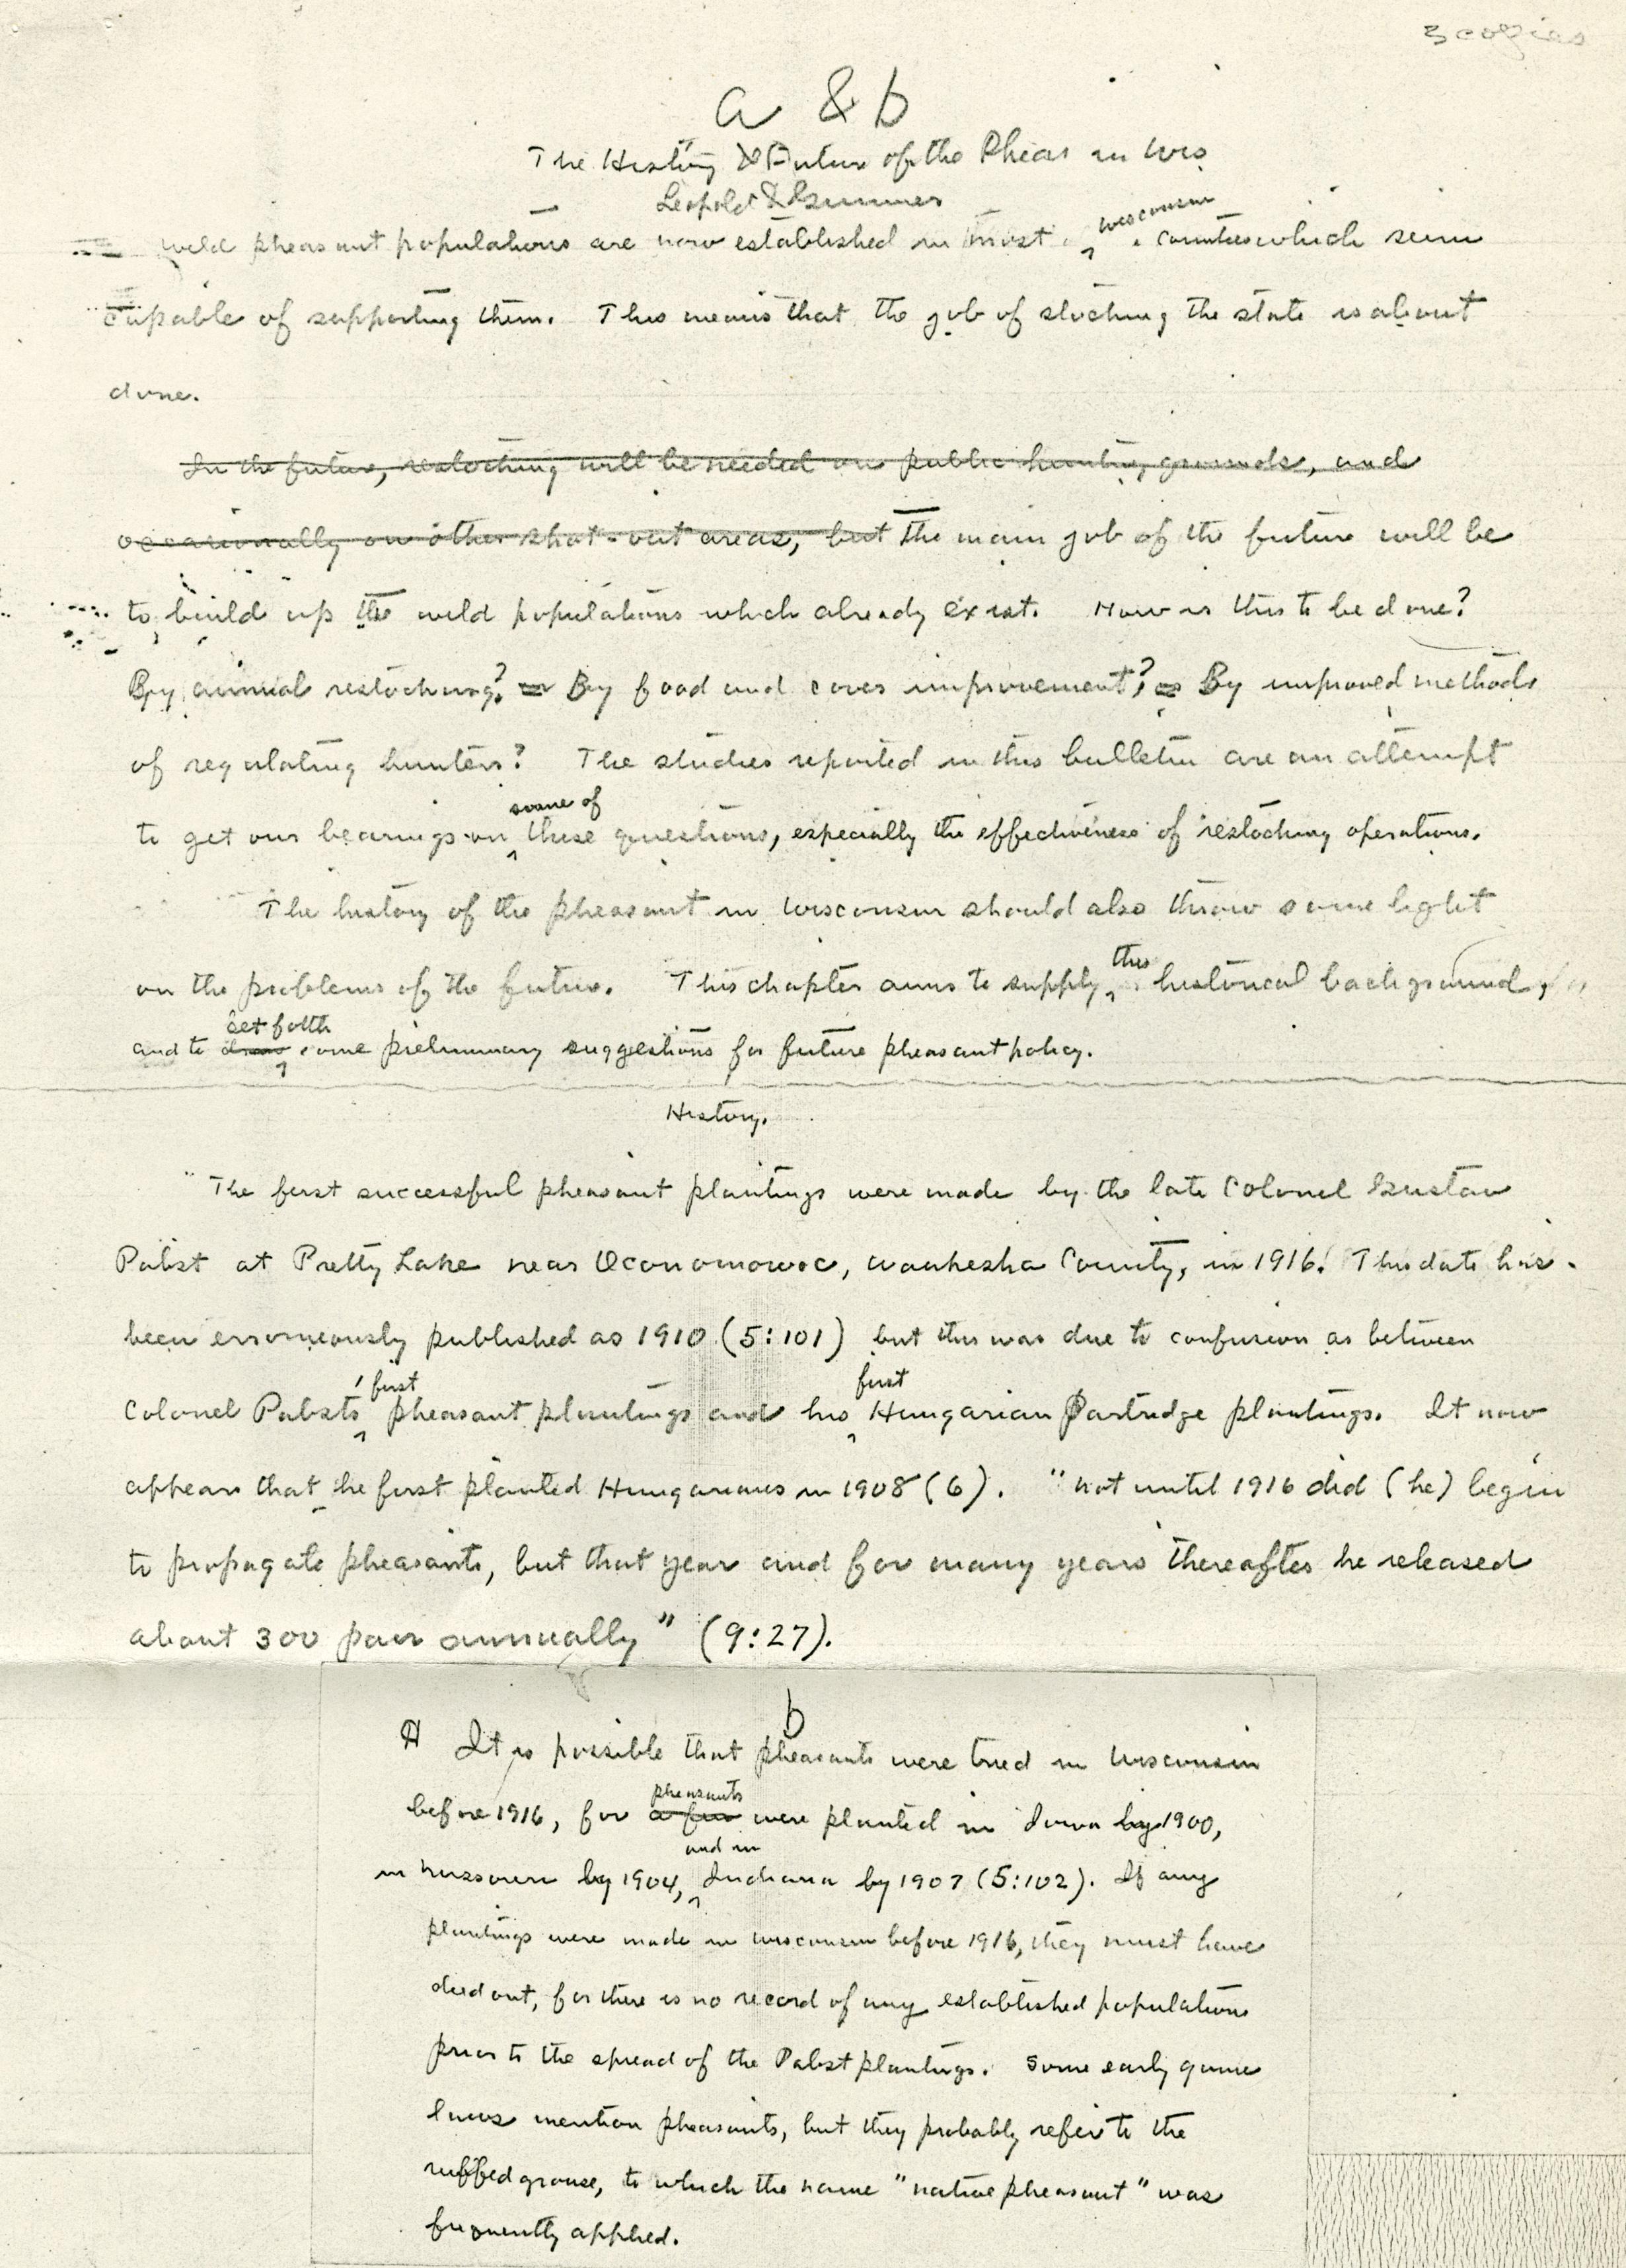 3 copies
a & b
The History & Future of the Pheas in Wis
Leopold &
Wild pheasant populations are now established in most Wisconsin counties which seem
capable of supporting them. This means that the job of stocking the state is about
done.
In the future, restocking will be needed on public hunting grounds, and
occasionally on other shot-out areas, but The main job of the future will be
to build up the wild populations which already exist. How is this to be done?
By annual restocking? or By food and cover improvement? or By improved methods
of regulating hunters? The studies reported in this bulletin are an attempt
to get our bearings on some of these questions, especially the effectiveness of restocking operations.
The history of the pheasant in Wisconsin should also throw some light
on the problems of the future. This chapter aims to supply this historical background,
and to draw set forth some preliminary suggestions for future pheasant policy.
History.
The first successful pheasant plantings were made by the late Colonel Gustav
Pabst at Pretty Lake near Oconomowoc, Waukesha County, in 1916. This date has
been erroneously published as 1910 (5:101) but this was due to confusion as between
Colonel Pabst's first pheasant plantings and his first Hungarian Partridge plantings. It now
appears that he first planted Hungarians in 1908 (6). "Not until 1916 did (he) begin
to propagate pheasants, but that year and for many years thereafter he released
about 300 pair annually" (9:27).
b
¶ It is possible that pheasants were tried in Wisconsin
before 1916, for a few pheasants were planted in Iowa by 1900,
in Missouri by 1904, and in Indiana by 1907 (5:102). If any
plantings were made in Wisconsin before 1916, they must have
died out, for there is no record of any established populations
prior to the spread of the Pabst plantings. Some early game
laws mention pheasants, but they probably refer to the
ruffed grouse, to which the name "native pheasant" was
frequently applied.